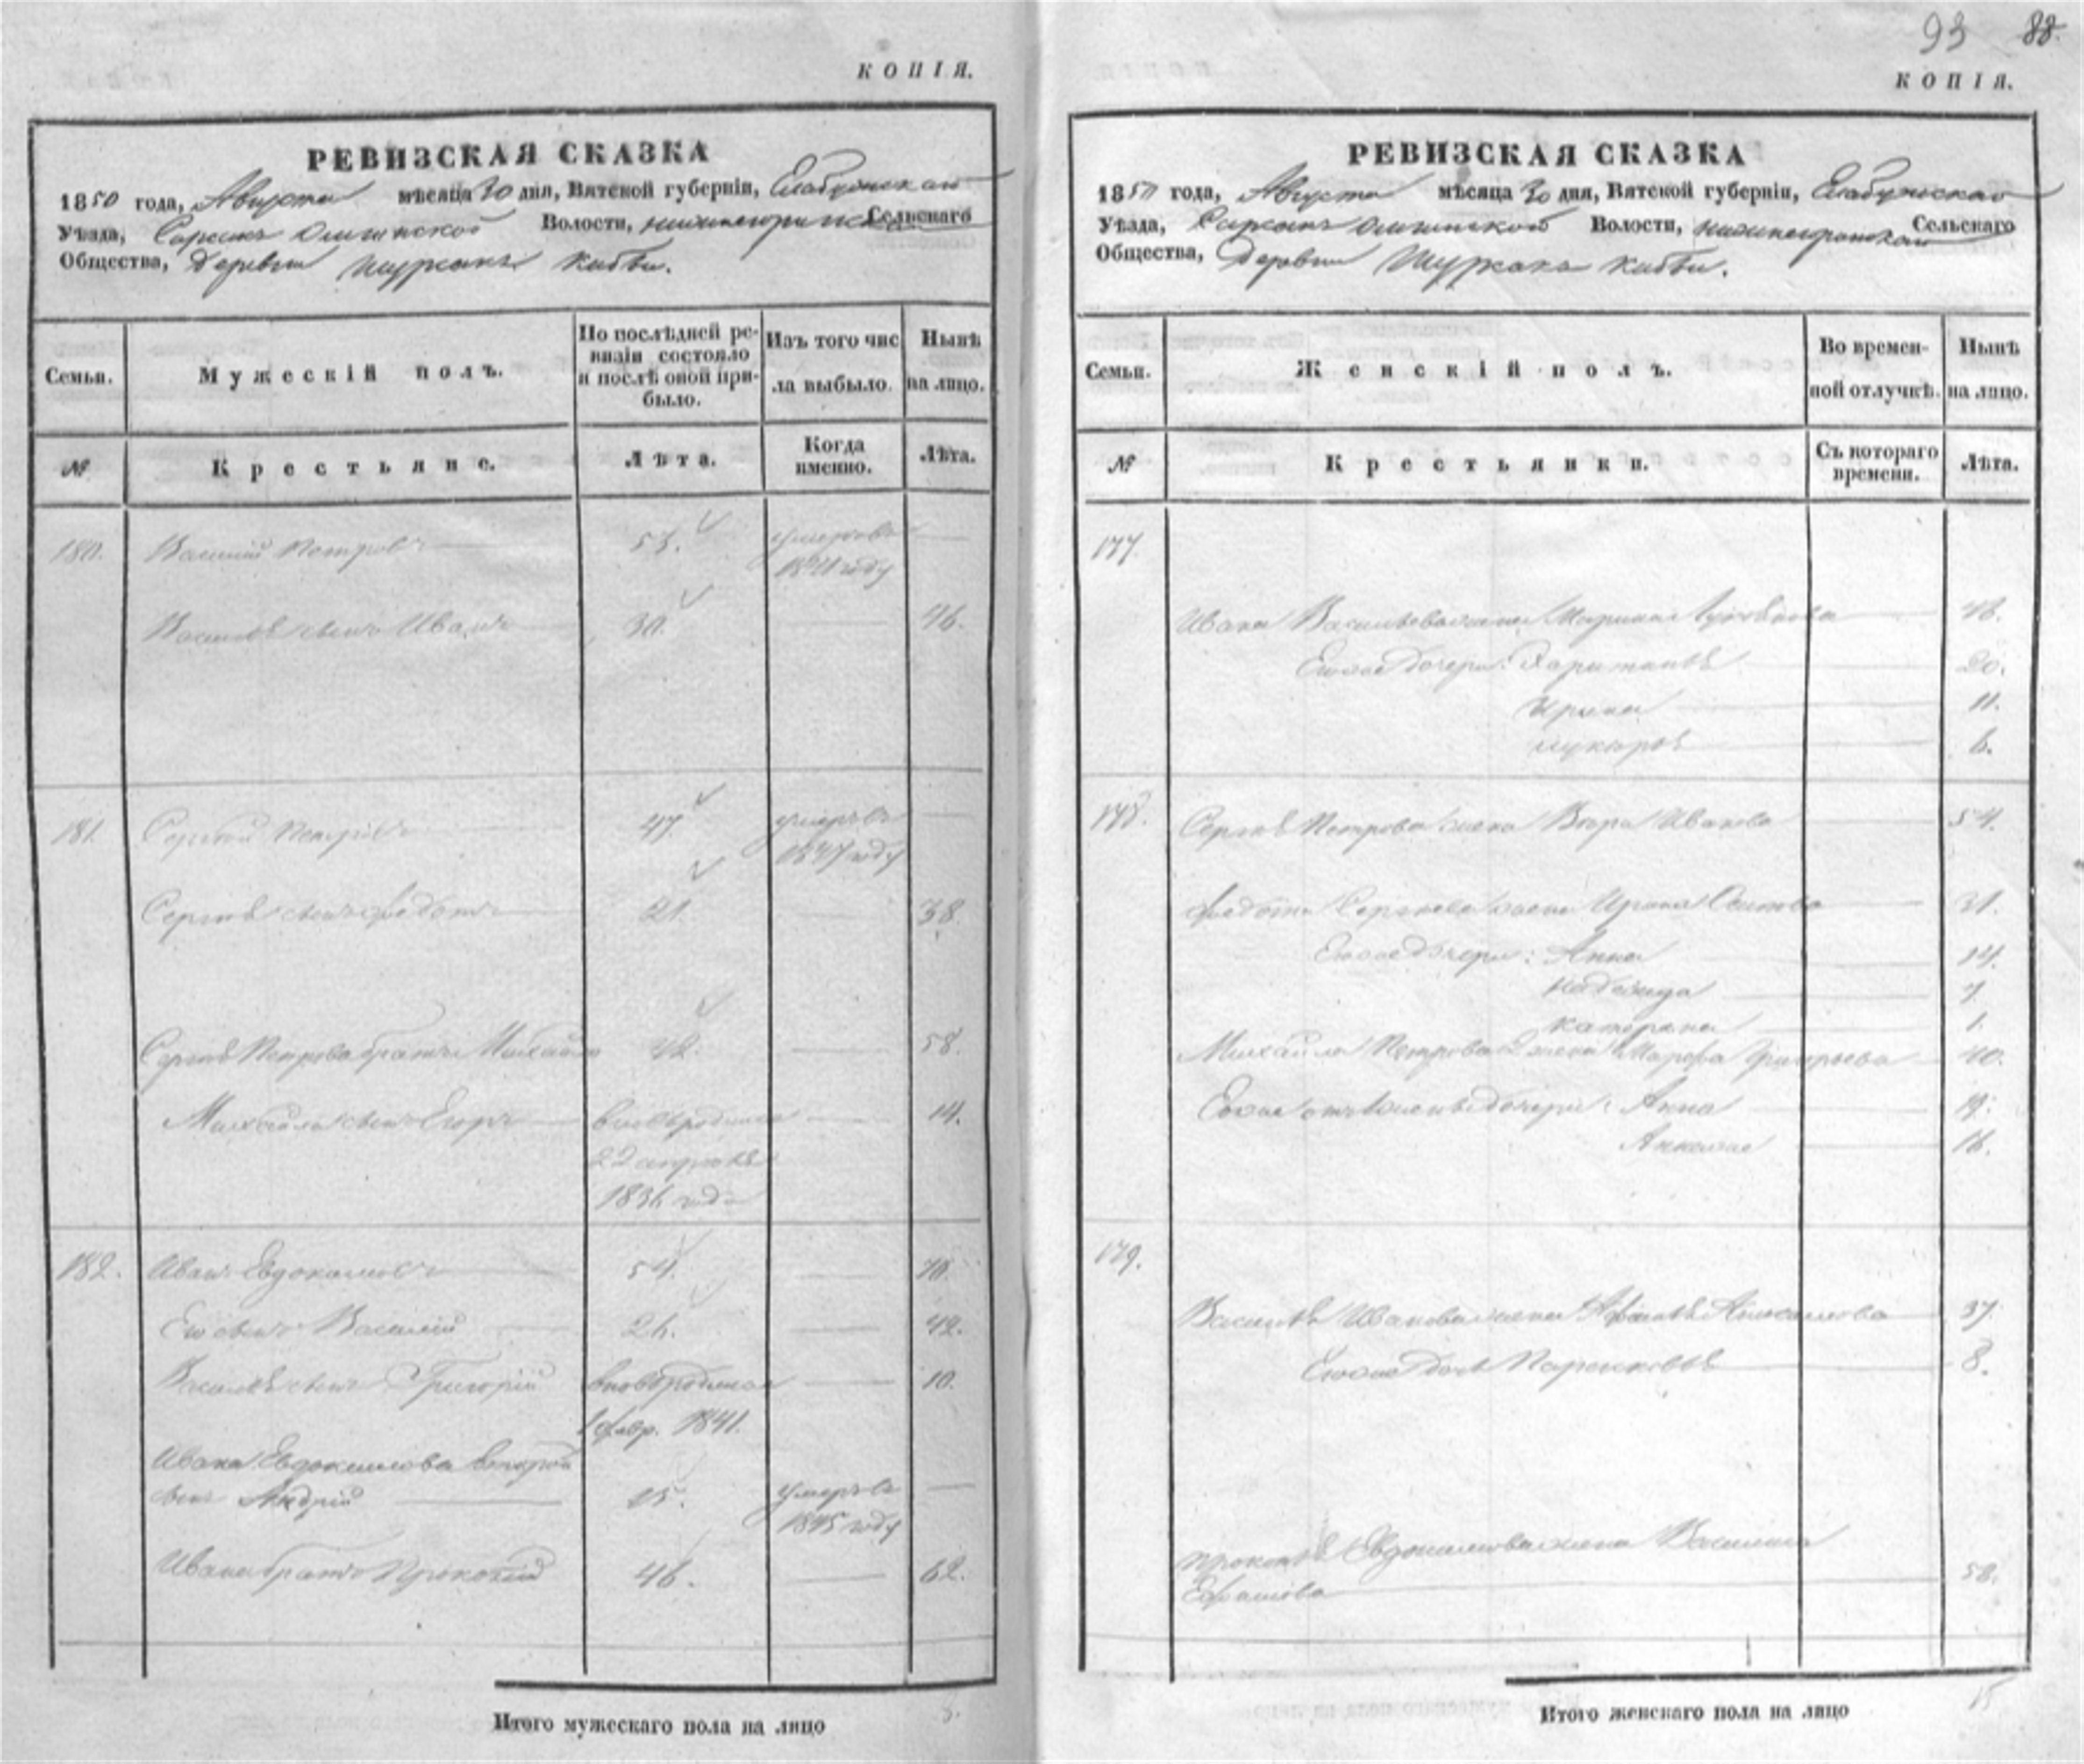 КОПІЯ.
РЕВИЗСКАЯ СКАЗКА
1850 года, Августа мѣсяца 30 дня, Вятской губерніи, Елабужскаго
Уѣзда, Волости, Сельскаго
Общества, деревни
Семьи.
Мужескій полъ.
По послѣдней ре-
визіи состояло
и послѣ оной при-
было.
Изъ того чис
ла выбыло.
Нынѣ
на лицо.
№
Крестьяне.
Лѣта.
Когда
именно.
Лѣта.
180. Василій Петровъ 53. умеръ въ
1841 году
Васильев сынъ Иванъ 30. 46.
181. Сергѣй Петровъ 47 умеръ въ
1847 году
Сергѣя сынъ Федотъ 21. 38.
Сергѣя Петрова братъ Михайло 42. 58.
Михайла сынъ Егоръ 14.
22 апрѣля
1836 года
182. Иванъ Евдокимовъ 54. 70.
Его сынъ Василій 26. 42.
Василья сынъ Григорій 10.
1 февр. 1841.
Ивана Евдокимова второй
сынъ Андрій 15. умеръ въ
1845 году
Ивана братъ Прокопій 46. 62.
Итого мужескаго пола на лицо 8.
93 88.
КОПІЯ.
РЕВИЗСКАЯ СКАЗКА
1850 года, Августа мѣсяца 30 дня, Вятской губерніи, Елабужскаго
Уѣзда, Волости, Сельскаго
Общества, Деревни
Семьи.
Женскій полъ.
Во времен-
ной отлучкѣ.
Нынѣ
на лицо.
№
Крестьянки.
Съ котораго
времени.
Лѣта.
177.
Ивана Васильева жена Марина 48.
Его же дочери: 20.
Ирина 11.
6.
178. Сергѣя Петрова жена Вѣра Иванова 54.
Федота Сергѣева жена Ирина Осипова 31.
Его же дочери: Анна 14.
Надежда 7.
Катерина 1.
Михайла Петрова 2 жена Марфа Григорьева 40.
дочери: Анна 19.
16.
179.
Василья Иванова жена 37.
Его же дочь 8.
Прокопья Евдокимова жена Василиса
58.
Итого женскаго пола на лицо 15